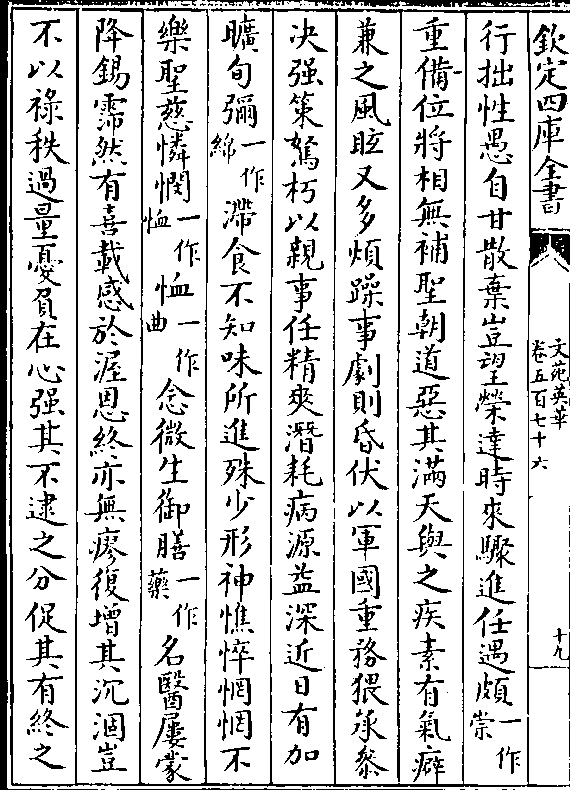 欽定四庫全書
文苑英華
卷五百七十六
十九
行拙性愚自甘散棄豈望榮達時來驟進任遇頗一作崇
重備位將相無補聖朝道惡其滿天與之疾素有氣癖
兼之風眩又多煩躁事劇則昏伏以軍國重務猥承叅
决强策駑朽以親事任精爽潛耗病源益深近日有加
曠旬彌一作綿滯食不知味所進殊少形神憔悴惘惘不
樂聖慈憐憫一作恤恤一作曲念微生御膳一作藥名醫屢蒙
降錫霈然有喜載感於渥恩終亦無瘳復增其沉涸豈
不以祿秩過量憂負在心强其不逮之分促其有終之